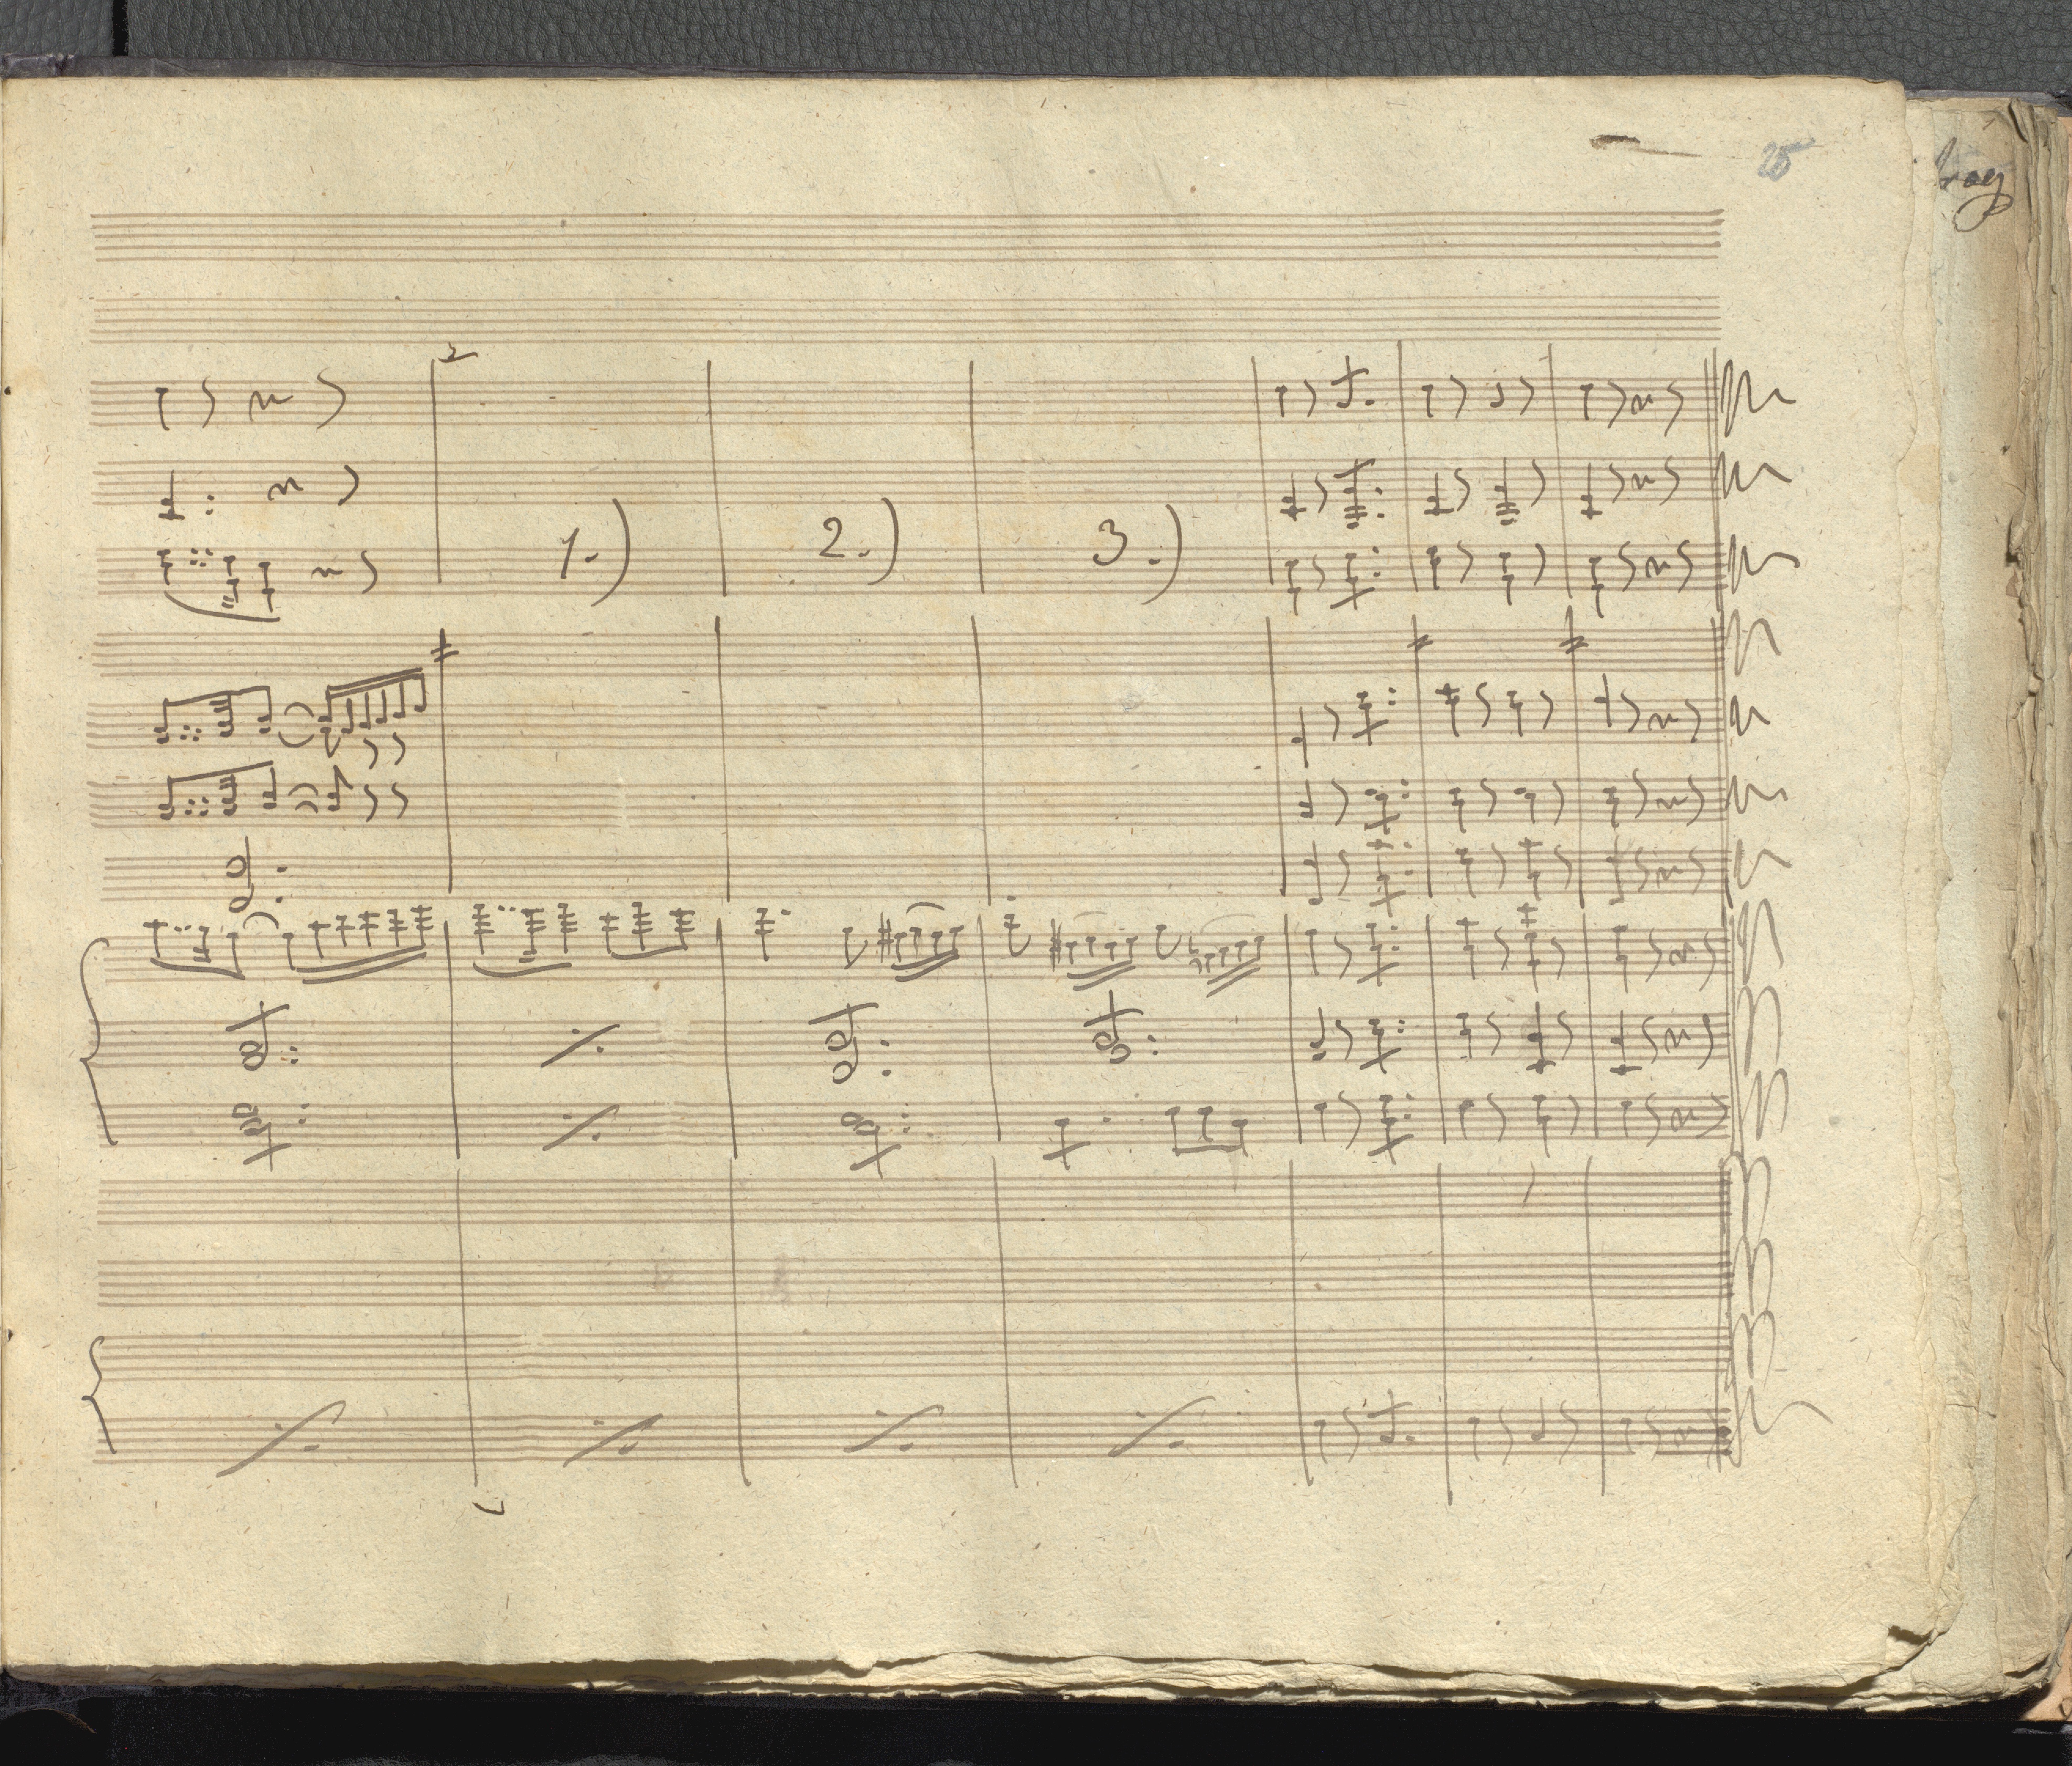 25
1.) 2.) 3.)